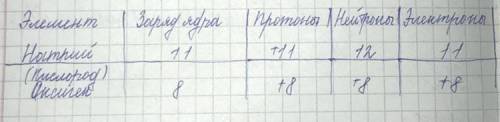 Элемент Заряд ядра Протоны Нейтроны Электроны
Натрий 11 +11 12 11
(Кислород)
Оксиген 8 +8 +8 +8